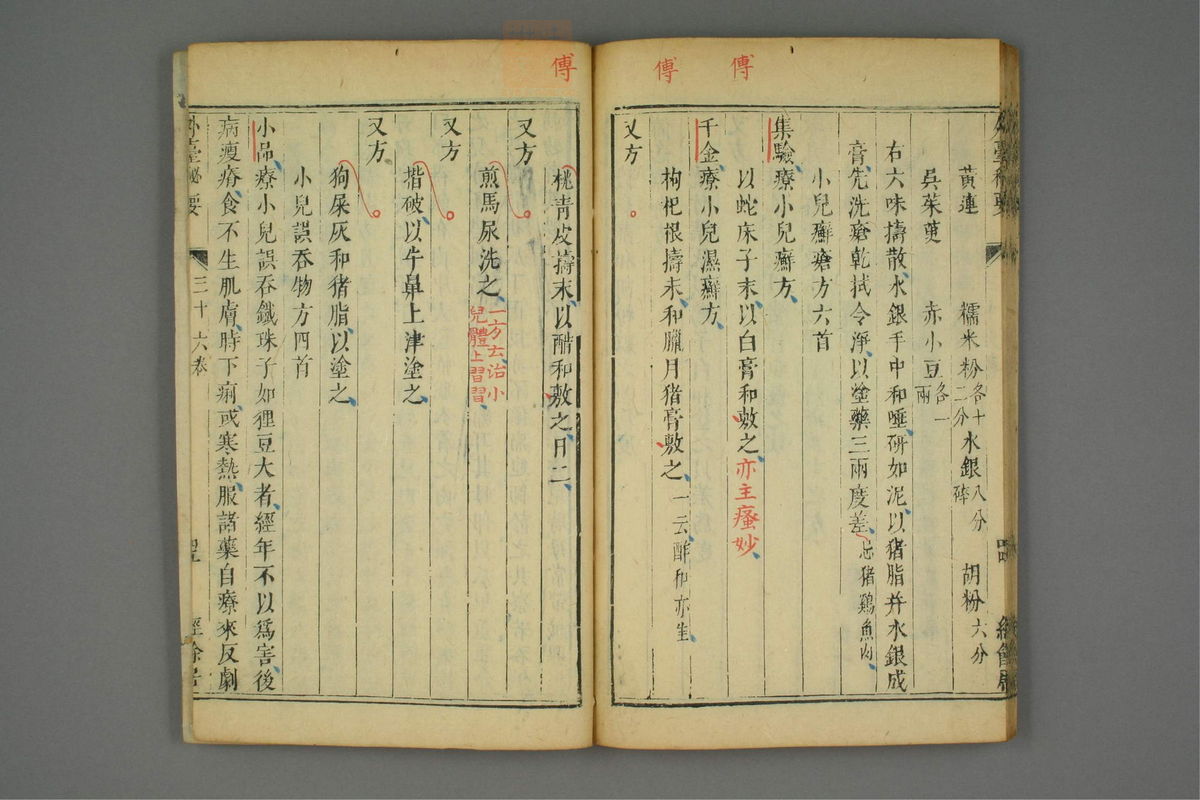 傅
傅
黃連　糯米粉各十二分　水銀八分碎　胡粉六分
吳茱萸　赤小豆各一兩
右六味擣散水銀手中和唾研如泥以猪脂并水銀成
膏先洗瘡乾拭令淨以塗藥三兩度差忌猪鷄魚肉
小兒癬瘡方六首
集驗療小兒癬方
以蛇床子末以白膏和敷之亦主瘙妙
千金療小兒濕癬方
枸杞根擣末和臘月猪膏敷之一云酢和亦佳
又方
傅
桃青皮擣末以酷和敷之日二
又方
煎馬尿洗之一方云治小兒體上習習
又方
揩破以牛鼻上津塗之
又方
狗屎灰和猪脂以塗之
小兒誤吞物方四首
小品療小兒誤吞鐵珠子如狸豆大者經年不以爲害後
病瘦瘠食不生肌膚時下痢或寒熱服諸藥自療來反劇
外臺秘要　三十六卷　經餘居